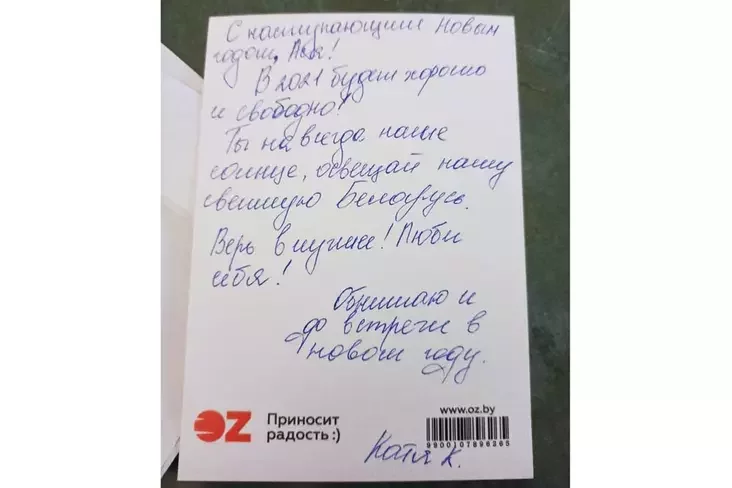 С наступающим Новым
годом, Ася!
В 2021 будет хорошо
и свободно!
Ты навсегда наше
солнце, освещай нашу
светлую Беларусь.
Верь в лучшее! Люби
себя!
Обнимаю и
до встречи в
новом году.
OZ Приносит
радость :)
www.oz.by
9900107896265
Катя К.